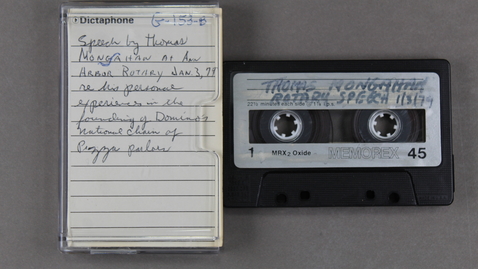 Dictaphone
G-153-B
Speech by Thomas
MONGAHAN At Ann
Arbor Rotary JAN. 3, 79
re his personal
experiences in the
founding of Domino's
National Chain of
Pizza parlors
THOMAS MONGAHAN
ROTARY SPEECH 1/3/79
22½ minutes each side at 1⅞ i.p.s.
1 MRX₂ Oxide MEMOREX 45